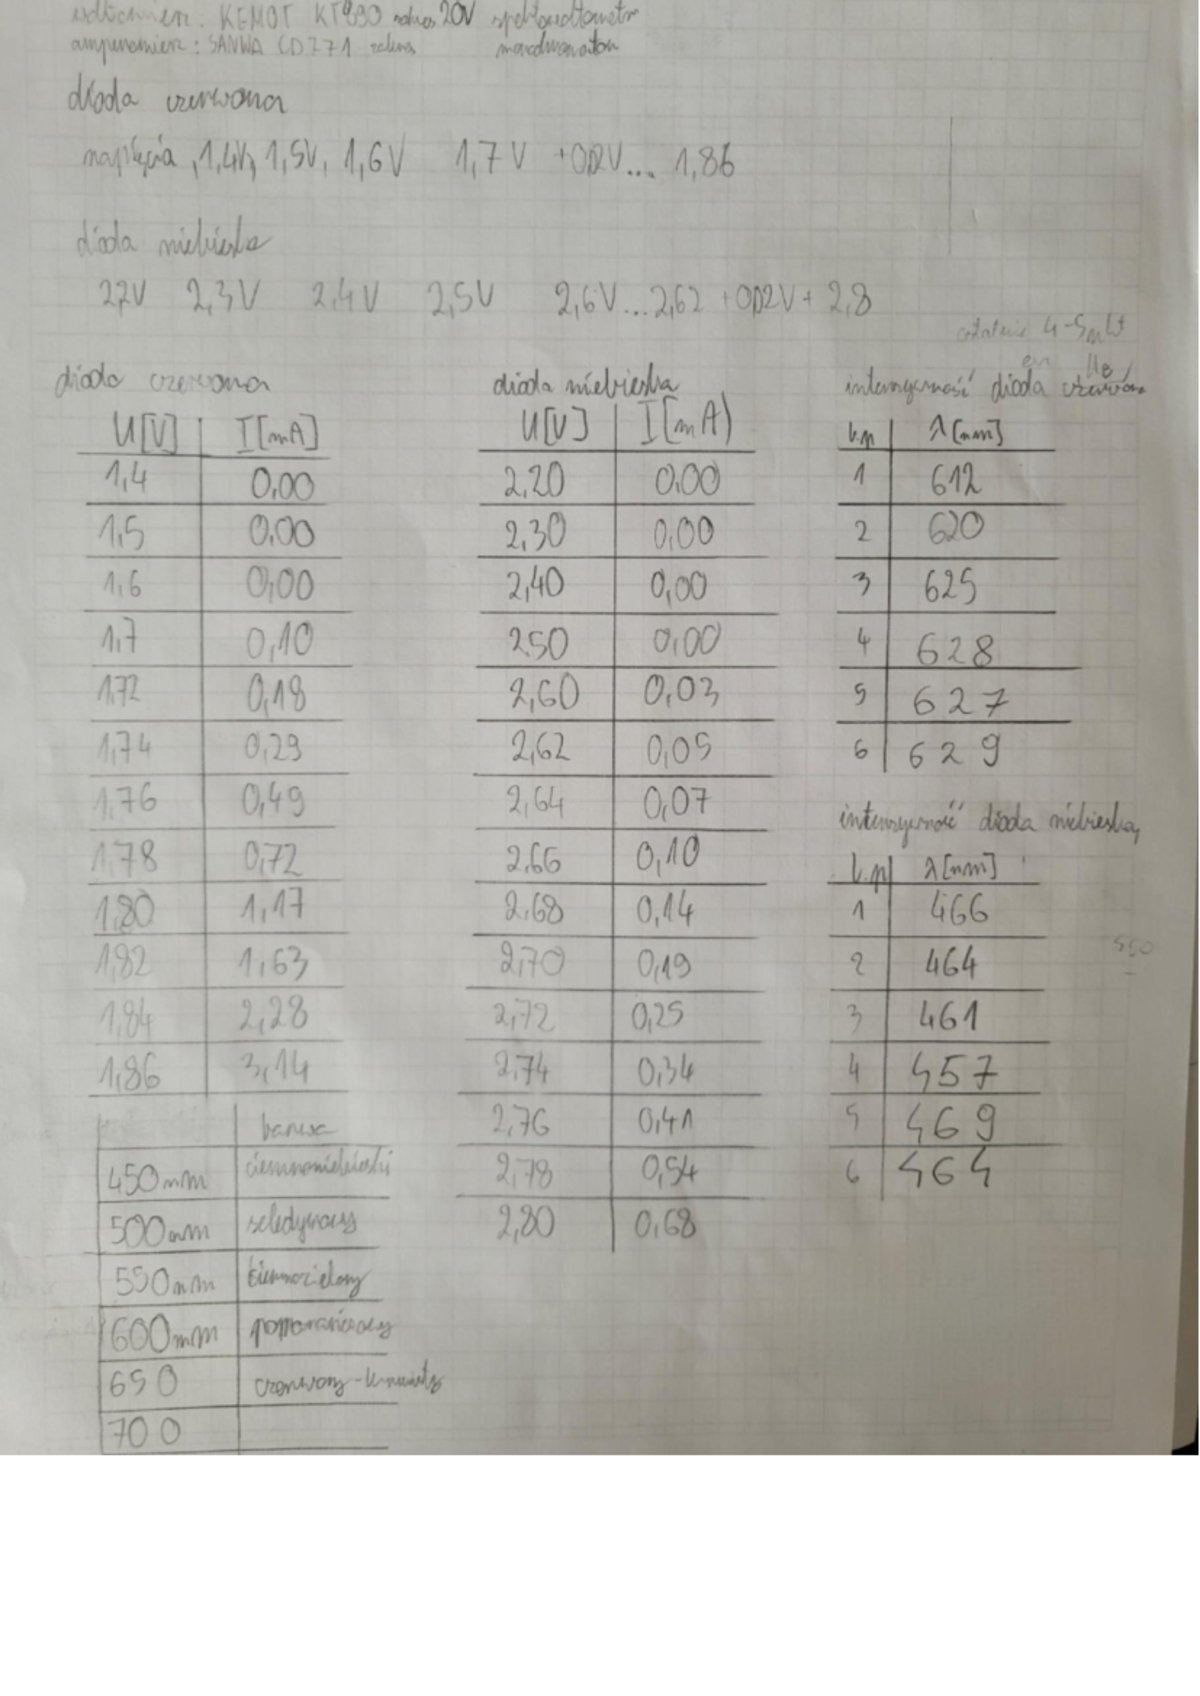 KEMOT KT890 zakres 20V spektrofotometr
amperomierz: SANWA CD771 zakres monochromator
dioda czerwona
napięcia, 1,4V, 1,5V, 1,6V 1,7V +0,02V... 1,86
dioda niebieska
2,2V 2,3V 2,4V 2,5V 2,6V...2,62 +0,02V+ 2,8
ostatnie 4-5
dioda czerwona
U[V] I[mA]
1,4 0,00
1,5 0,00
1,6 0,00
1,7 0,10
1,72 0,18
1,74 0,29
1,76 0,49
1,78 0,72
1,80 1,17
1,82 1,63
1,84 2,28
1,86 3,14
barwa
450nm ciemnoniebieski
500nm seledynowy
550nm ciemnozielony
600nm pomarańczowy
650 czerwony-
700
dioda niebieska
U[V] I[mA)
2,20 0,00
2,30 0,00
2,40 0,00
2.50 0,00
2,60 0,03
2,62 0,05
2,64 0,07
2.66 0,10
2.68 0,14
2,70 0,19
2,72 0,25
2,74 0,34
2,76 0,41
2,78 0,54
2,80 0,68
intensywność dioda czerwona
l.p λ[nm]
1 612
2 620
3 625
4 628
5 627
6 629
intensywność dioda niebieska
l.p λ[nm]
1 466
2 464
3 461
4 457
5 469
6 464
550